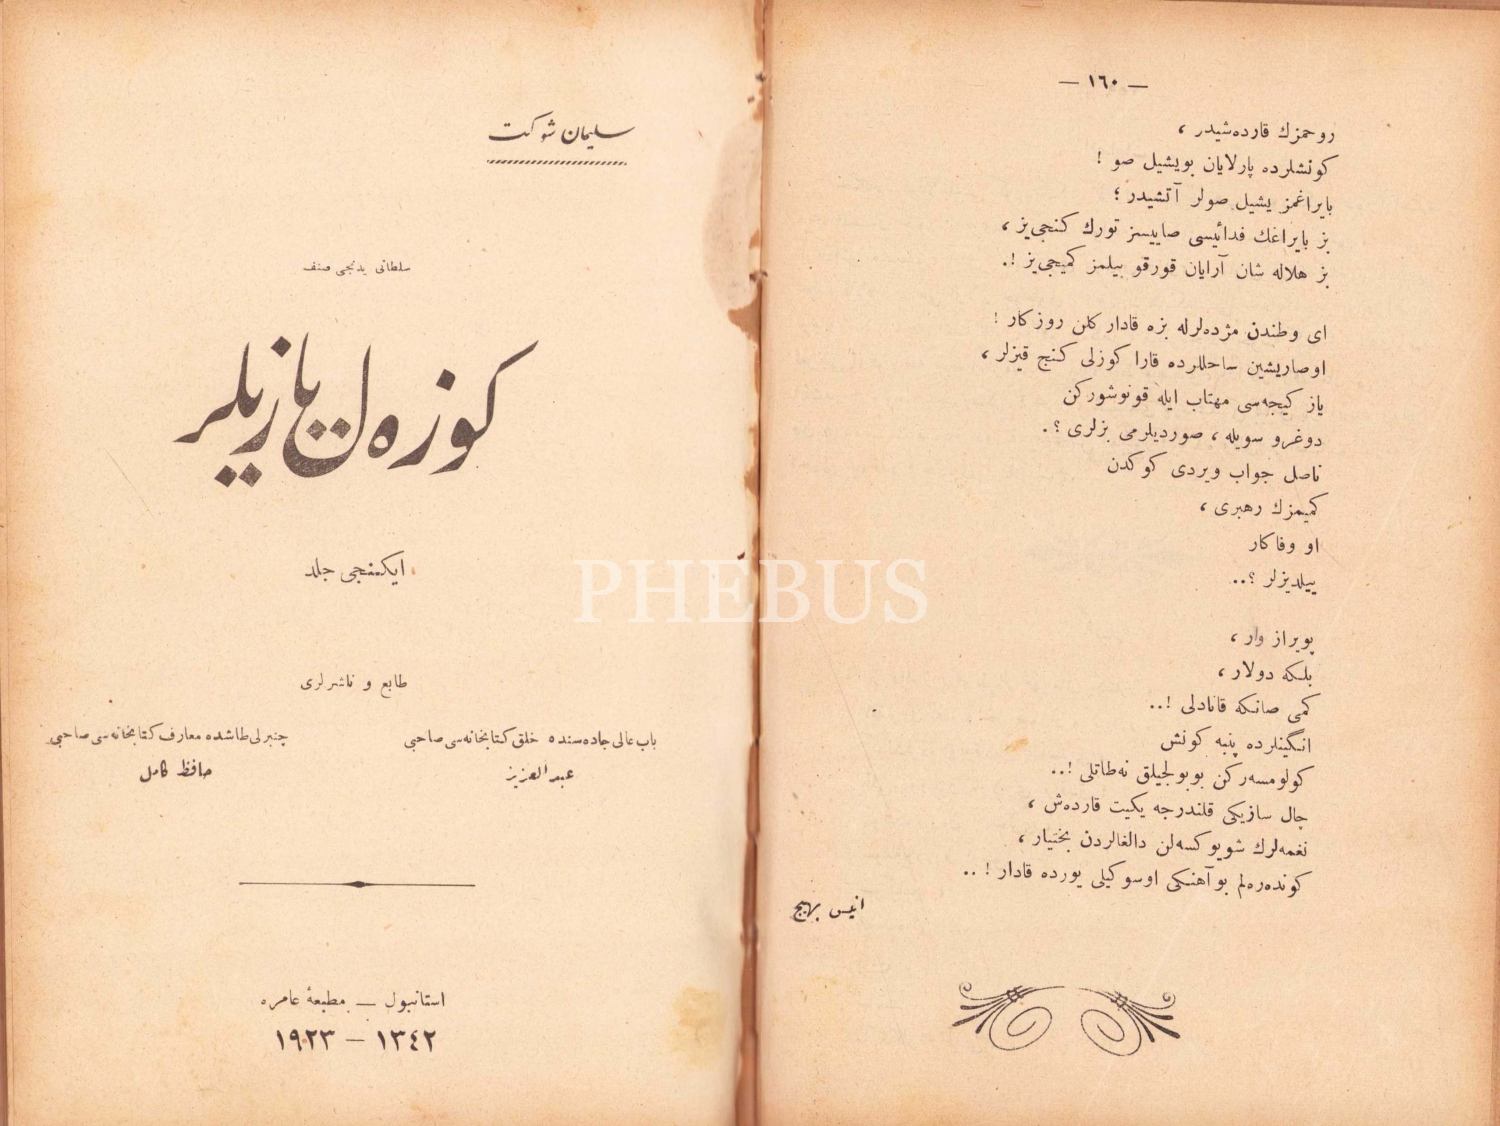 — ١٦٠ —
روحمزك قارده‌شيدر ،
كونشلرده پارلايان بويشيل صو !
بايراغمز يشيل صولر آتشيدر ؛
بز بايراغك فدائيسى صاييسز تورك كنجى‌يز ،
بز هلاله شان آرايان قورقو بيلمز كميجى‌يز !.
اى وطندن مژده‌لرله بزه قادار كلن روزكار !
اوصاريشين ساحللرده قارا كوزلى كنج قيزلر ،
ياز كيجه‌سى مهتاب ايله قونوشوركن
دوغرو سويله ، صورديلرمى بزلرى ؟.
ناصل جواب ويردى كوكدن
كميمزك رهبرى ،
او وفاكار
ييلديزلر ؟..
پويراز وار ،
بلكه دولار ،
كمى صانكه قانادلى !..
انگينلرده پنبه كونش
كولومسه‌ركن بويولجيلق نه‌طاتلى !..
چال سازيكى قلندرجه يكيت قارده‌ش ،
نغمه‌لرك شويوكسه‌لن دالغالردن بختيار ،
كونده‌ره‌لم بوآهنكى اوسوكيلى يورده قادار !..
انيس بهيج
سليمان شوكت
سلطانى يدنجى صنف
كوزه‌ل يازيلر
ايكنجى جلد
طابع و ناشرلرى
باب عالى جاده‌سنده خلق كتابخانه‌سى صاحبى
عبدالعزيز
چنبرلى طاشده معارف كتابخانه‌سى صاحبى
حافظ كامل
استانبول — مطبعهٔ عامره
١٣٤٢ — ١٩٢٣
PHEBUS